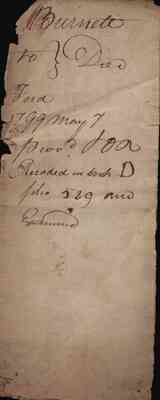 Burnett
to } Deed
Ford
1799 May 7
prov.d &
Recorded in book D
folio 529 and
Examined